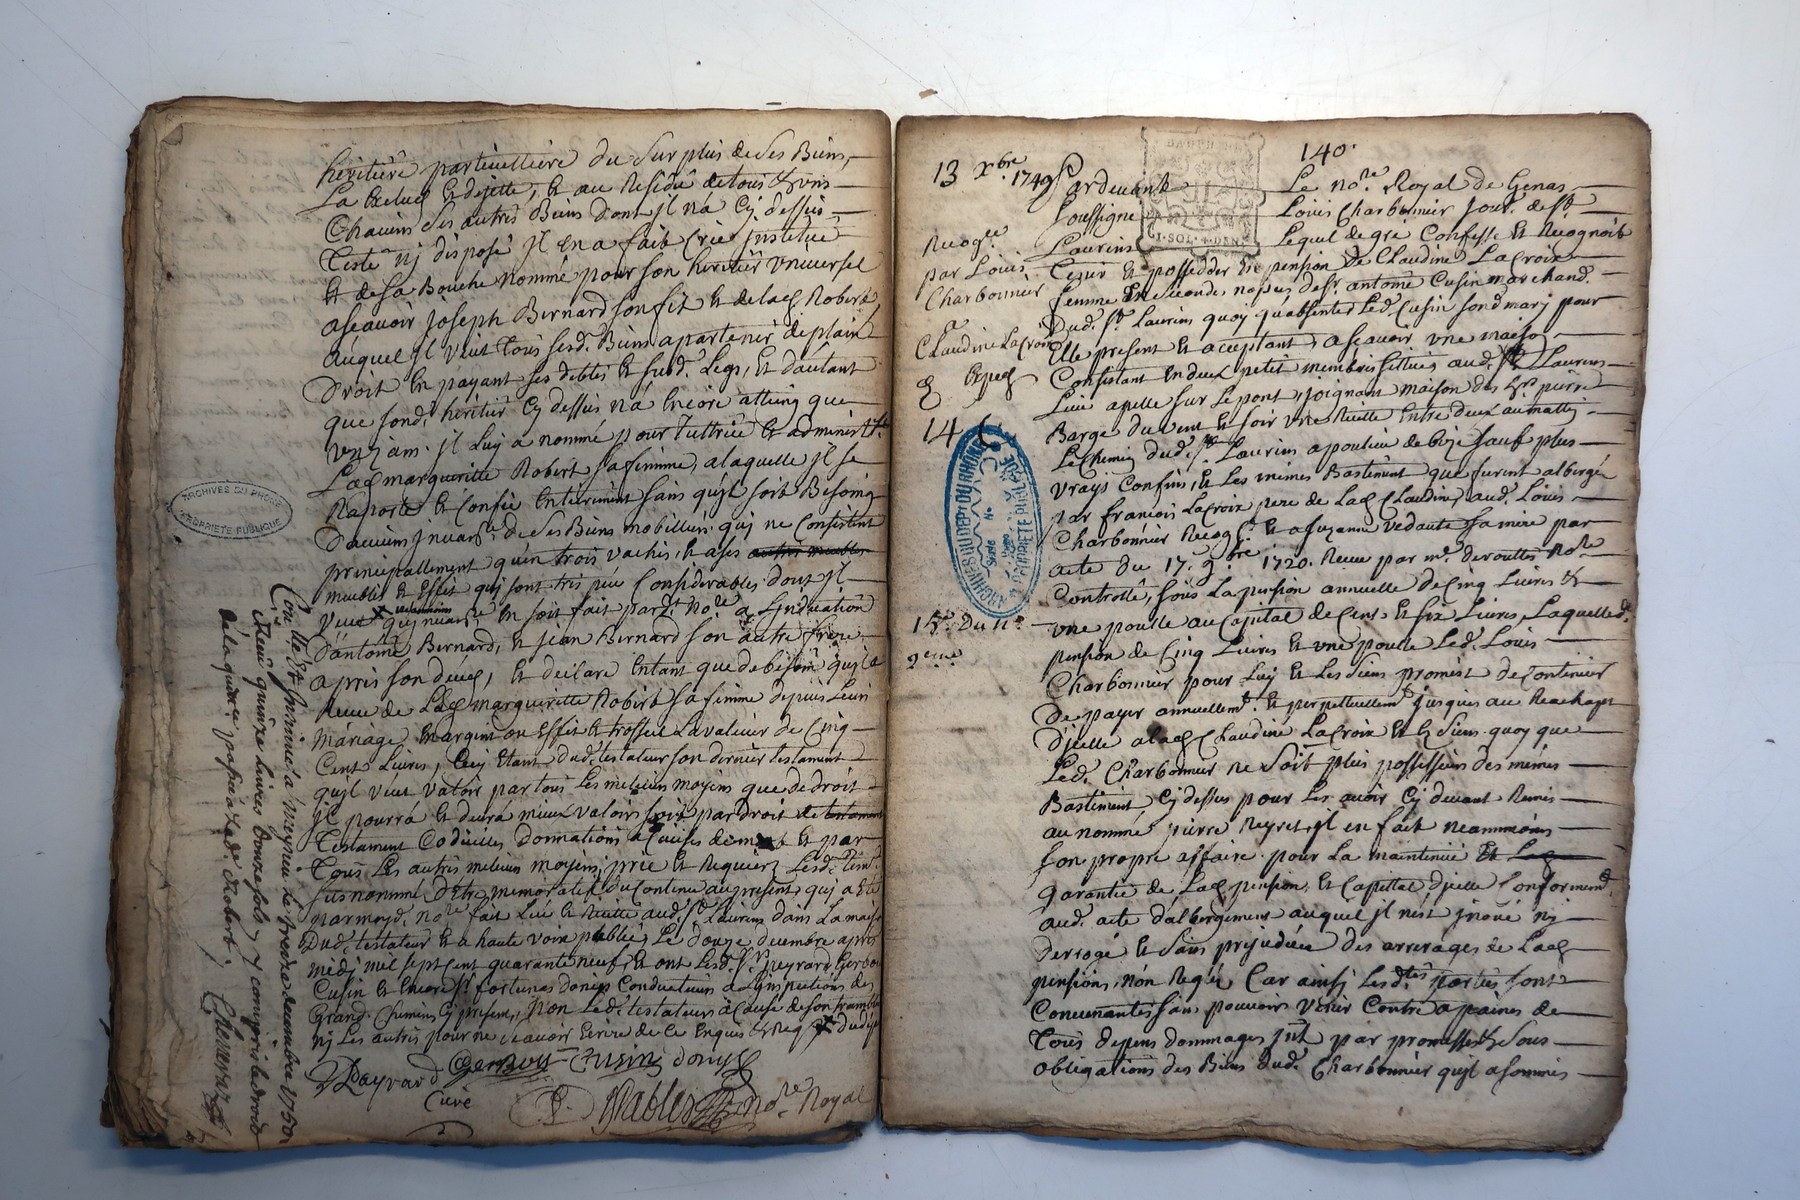 heritiere particulliere du surplus de ses Biens,
La exclud et dejette, et au Residu de tous et uns
Chacuns ses autres Biens dont jl na cy dessus
Testé nj disposé jl en a fait Crée jnstitué
et de sa Bouche nommé pour son heritier universel
ascavoir joseph Bernard son fil et de lad Robert
auquel jl veut tous sesd. Biens apartenir de plain
Droit en payant ses debtes et susd. Legs, et dautant
que sond. heritier cy dessus na encore atteint que
jl luy a nommé pour Tuttrice et administ.
Lad margueritte Robert sa femme, a laquelle jl se
Raporte et Confie Entierement sans quil soit Besoing
Daucuns de ses Biens mobilliers qui ne Consistent
principallement quen trois vaches, et a ses autres meubles
meubles et Effet qui sont tres peu Considerables dont jl
veut en soit fait par not.re a
Dantoine Bernard, et jean Bernard son autre frere
apres son déces, et declare Entant que de besoin quil a
Receu de Lad marguerritte Robert sa femme depuis Leur
mariage en argent ou Effet et trossel La valleur de Cinq
Cent Livres, Cecy Etant dud. testateur son dernier testament
quil veut valoir par tous Les melieurs moyens que de droit
jl pourrá et devrá mieux valoir soit par droit de testament
Testament Codicilles donnations a Cause de mort et par
Tous Les autres melieurs moyens, prie et Requiert Lesd. tem.
susnommé D'être memoratif du Contenu au present, qui a été
par moyd. no.re fait Lu et Recitté aud. St. Laurens dans La maison
Dud. testateur et a haute voix publié, Le douze decembre apres
medj mil sept cent quarante neuf et ont Lesd. Srs. peyrard Gerbou
Cusin et fortunas donis Conducteur
Grand Chemins Cy present, non Led. testateur a Cause de son tremble
nj Les autres pour ne scavoir Ecrire de Ce Enquis et Req
Peyrard Cusin donis
Curé
Nables no.re Royal
Con.lle Et jnsinué a meyzieu Le trente decembre 1750
Receu quinze Livres Douze sols y compris Le droit
de La quitt. passée a Lad. Robert.
ARCHIVES DU RHONE
PROPRIETE PUBLIQUE
140.
13 xbre. 1749
Pardevant Le no.re Royal de Genas
soussigné Louis Charbonnier Jour. de St.
Laurens Lequel de gre Confesse et Recognoit
Tenir et possedder de pension de Claudine La Croix
femme En seconde nopces de Sr. antoine Cusin marchand
Dud. St. Laurens quoy quabsente Led. Cusin sond mary pour
Elle present et aceptant, ascavoir une maison
Consistant en deux petit membres sittués aud. St Laurens
Lieu apellé sur Le pont, joignant maison des hrs. pierre
Barge du vent et soir une Ruelle entre deux au matin
Le Chemin dud. St. Laurens a de bize sauf plus
vrays Confins, et Les mêmes Bastiment que furent albergés
par francois La Croix pere de Lad Claudine aud. Louis
Charbonnier Recog.t et a Suzanne vedante sa mere par
acte du 17. 9.bre 1720. Receu par me. no.re
Controllé, sous La pension annuelle de Cinq Livres et
une poulle au Capital de Cent et six Livres, Laquelle d.
pension de Cinq Livres et une poulle Led. Louis
Charbonnier pour Luy et Les siens promest de Continuer
De payer annuellemt. et perpetuellemt jusques au Reachapt
D'jcelle a lad Claudine La Croix et Les siens quoy que
Led. Charbonnier ne soit plus possesseur des mêmes
Bastiment cy dessus pour Les avoir cy devant Remis
au nommé pierre Reyret, jl en fait neanmoins
son propre affaire pour La maintenüe et Lad
garantie de Lad pension, et Capittal djcelle Conformemt.
aud. acte d'albergement auquel jl n'est jnové nj
derrogé et sans prejudice des arrerages de Lad
pension, non Regée Car ainsj Lesd.tes parties sont
Convenantes sans pouvoir venir Contre a paines de
Tous depens dommages jnt par promesses et sous
obligations des Biens dud. Charbonnier quil a soumis
Recog.ce
par Louis
Charbonnier
a
Claudine La Croix
14
15e. Du 11e.
ARCHIVES DU DEPT DU RHONE
PROPRIETE PUBLIQUE
SOL. 4. DEN.